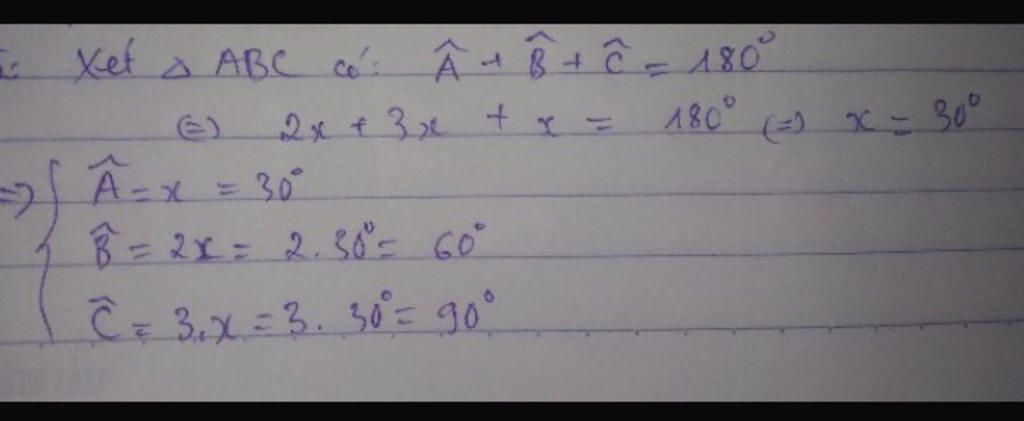 Xét △ ABC có: Â + B̂ + Ĉ = 180°
(=) 2x + 3x + x = 180° (=) x = 30°
=> { Â = x = 30°
B̂ = 2x = 2. 30° = 60°
Ĉ = 3.x = 3. 30° = 90°